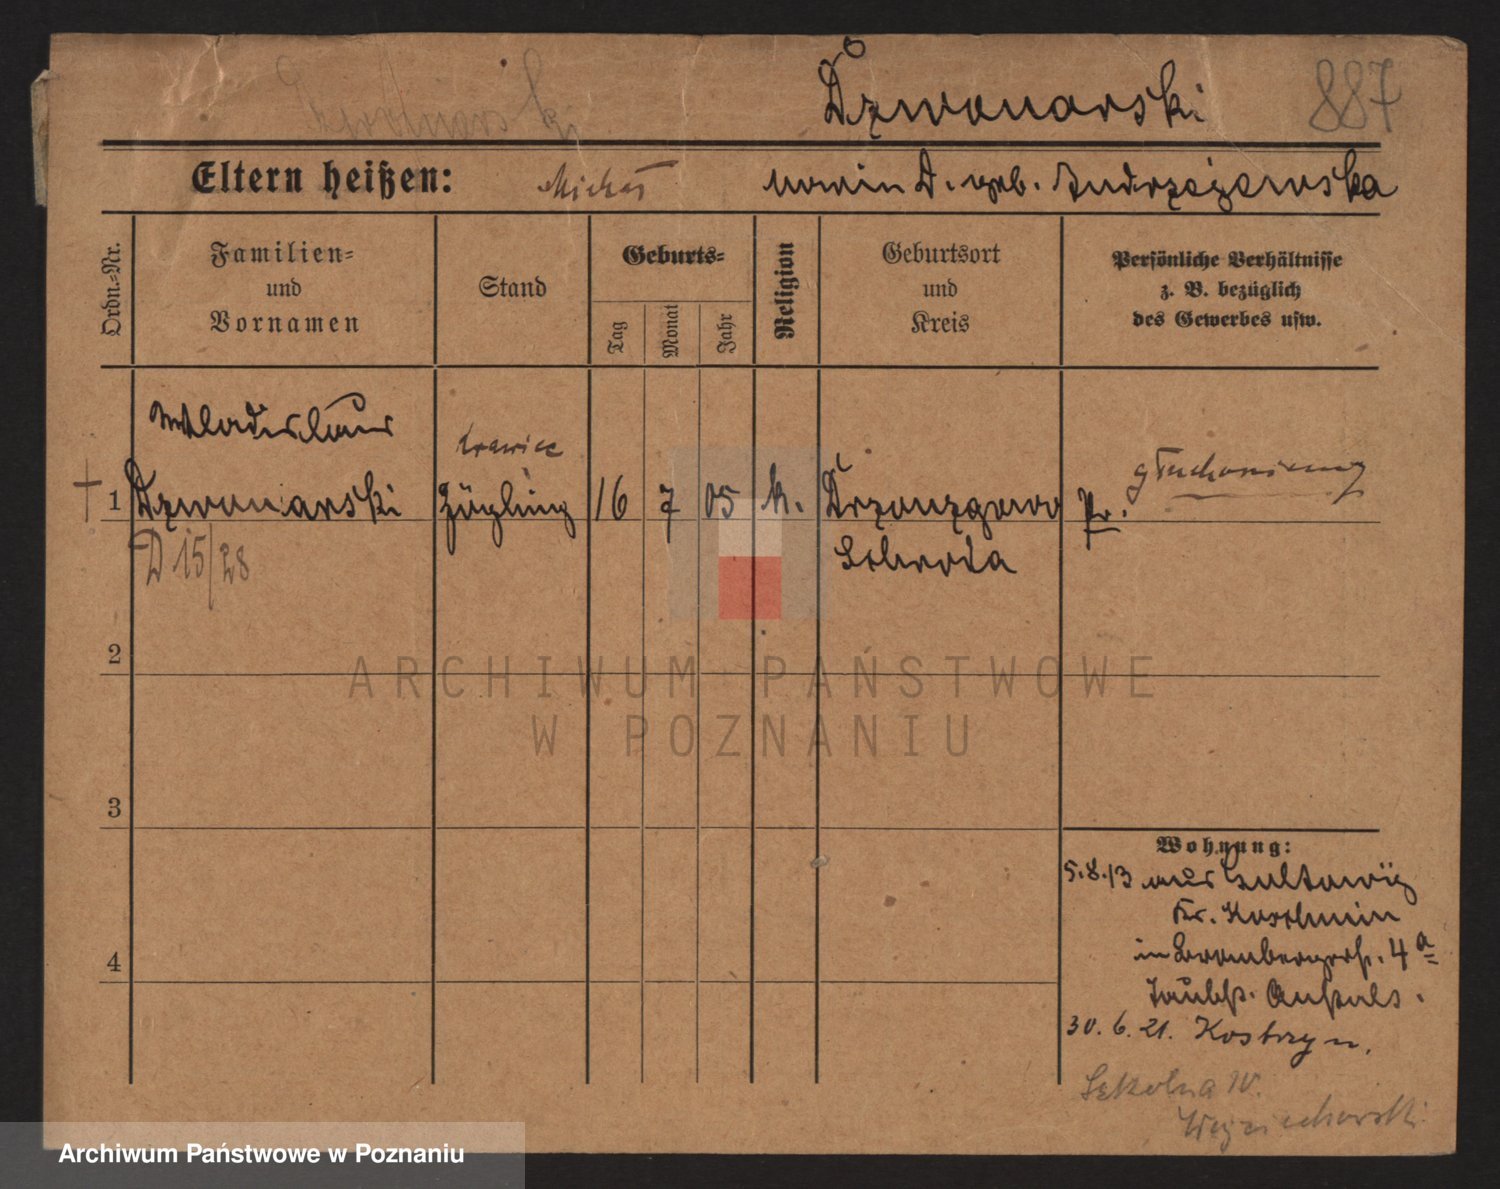 Dzwonarski
Dzwonarski 887
Eltern heißen: Michał D. geb. Andrzejewska
Ordn.-Nr.
Familien-
und
Vornamen
Stand
Geburts-
Tag
Monat
Jahr
Religion
Geburtsort
und
Kreis
Persönliche Verhältnisse
z. B. bezüglich
des Gewerbes usw.
Wladislaus
krawiec
głuchoniemy
1 Dzwonarski Zögling 16 7 05 k. Pr.
D 15/28
Schroda
2
3
4
Wohnung:
5.8.13 aus
Kr. Koschmin
in Brombergerstr. 4a
Taubst. Anstalt.
30.6.21. Kostrzyn.
Szkolna W.
Wojciechowski
ARCHIWUM PAŃSTWOWE
W POZNANIU
Archiwum Państwowe w Poznaniu